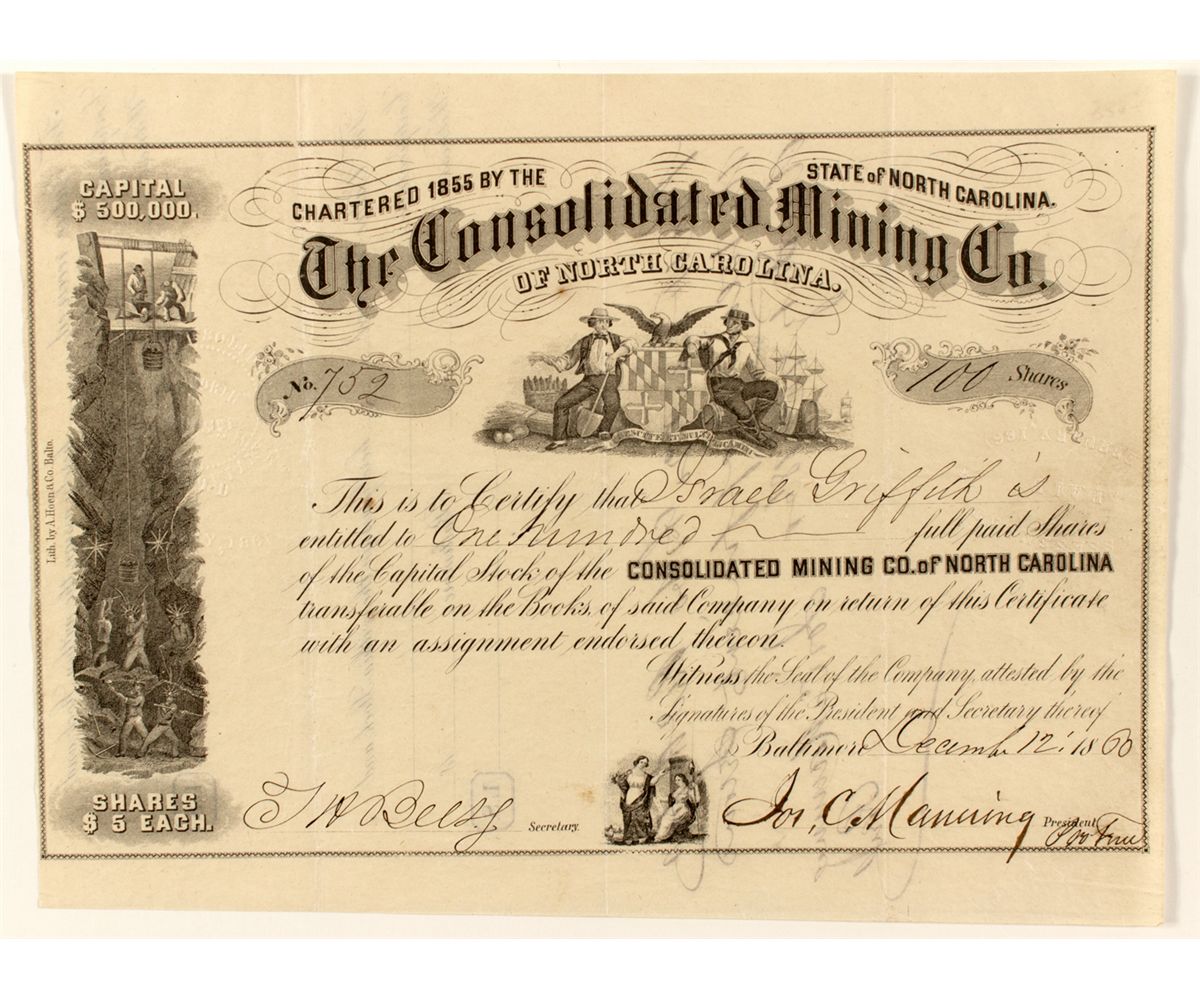 CAPITAL
$ 500,000.
CHARTERED 1855 BY THE
STATE of NORTH CAROLINA.
The Consolidated Mining Co.
OF NORTH CAROLINA.
No. 752
100 Shares
This is to Certify that Israel Griffith is
entitled to One hundred full paid Shares
of the Capital Stock of the CONSOLIDATED MINING CO. of NORTH CAROLINA
transferable on the Books, of said Company on return of this Certificate
with an assignment endorsed thereon.
Witness the Seal of the Company, attested by the
Signatures of the President and Secretary thereof
Baltimore December 12: 1860
SHARES
$ 5 EACH.
Secretary.
Jos, C. Manning President
Pro Tem
Lith. by A. Hoen & Co. Balto.